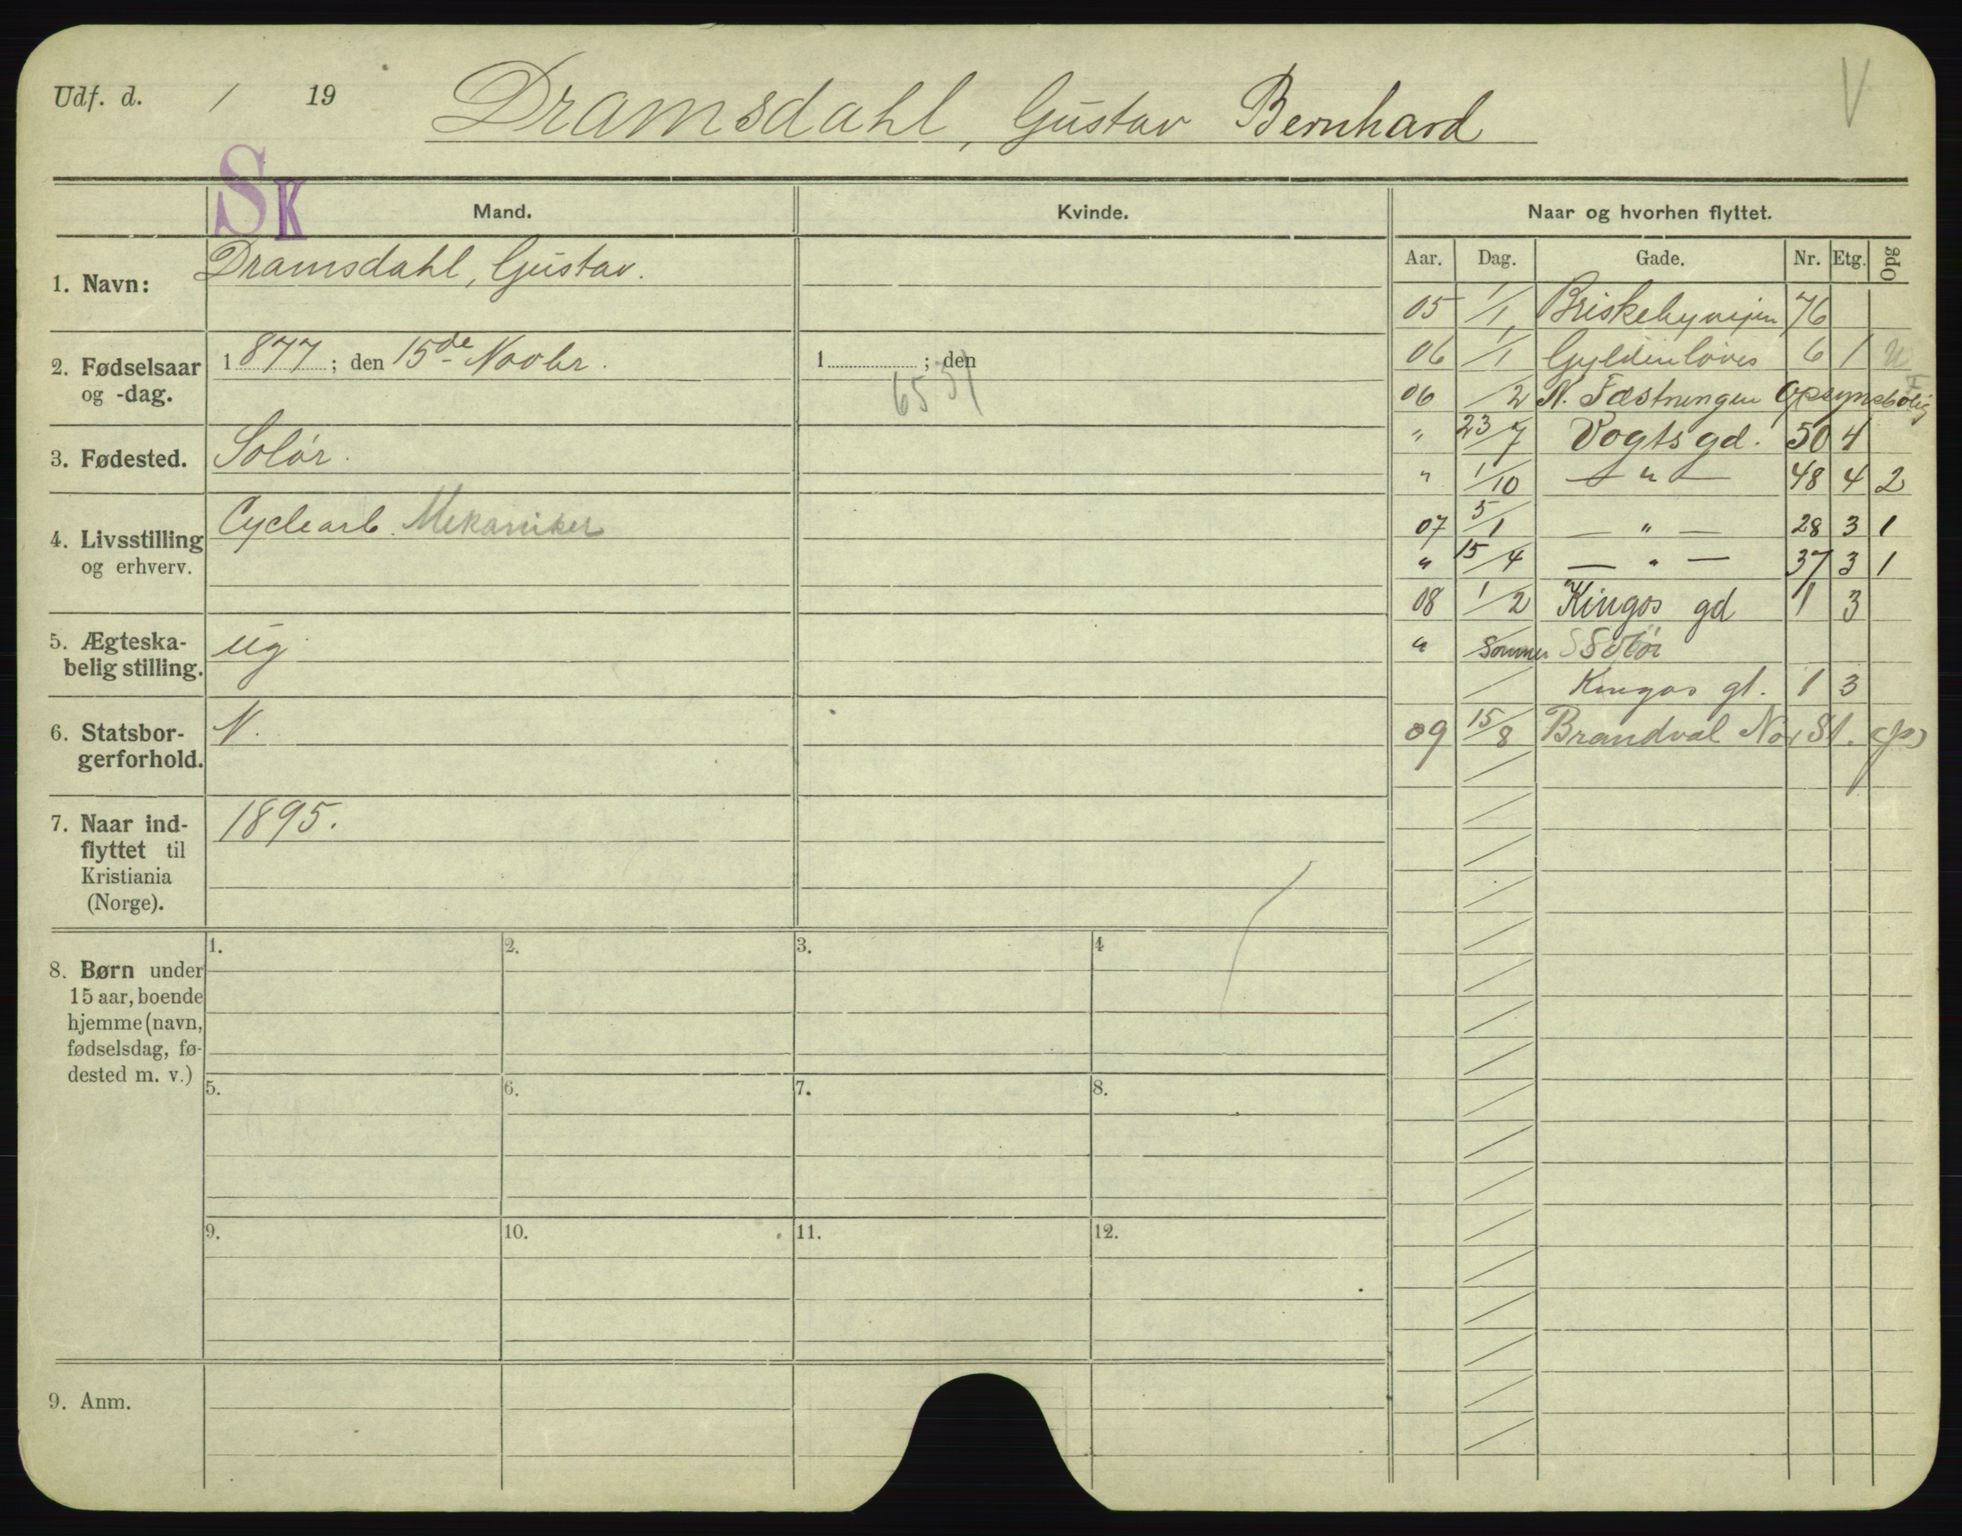 Udf. d. / 19 Dramsdahl, Gustav Bernhard V
SK
Mand. Kvinde. Naar og hvorhen flyttet.
Aar. Dag. Gade. Nr. Etg. Opg
1. Navn: Dramsdahl, Gustav.
2. Fødselsaar og -dag. 1877; den 15de Novbr. 1 ; den
65 51
3. Fødested. Solør.
4. Livsstilling og erhverv. Cyclearb. Mekaniker
5. Ægteska-
belig stilling. ug
6. Statsbor-
gerforhold. N.
7. Naar ind-
flyttet til
Kristiania
(Norge).
1895.
05 1/1 Briskebyveijen 76
06 1/1 Gyldenløves 6 1
06 /2 N. Fæstningen Opsynsbolig
" 23/7 Vogts gd. 50 4
" 1/10 — " — 48 4 2
07 5/1 — " — 28 3 1
" 15/4 — " — 37 3 1
08 1/2 Kingos gd 1 3
" Sommer Solør
/ Kingos gt. 1 3
09 15/8 Brandval No, St.
8. Børn under
15 aar, boende
hjemme (navn,
fødselsdag, fø-
dested m. v.)
1. 2. 3. 4
5. 6. 7. 8.
9. 10. 11. 12.
9. Anm.